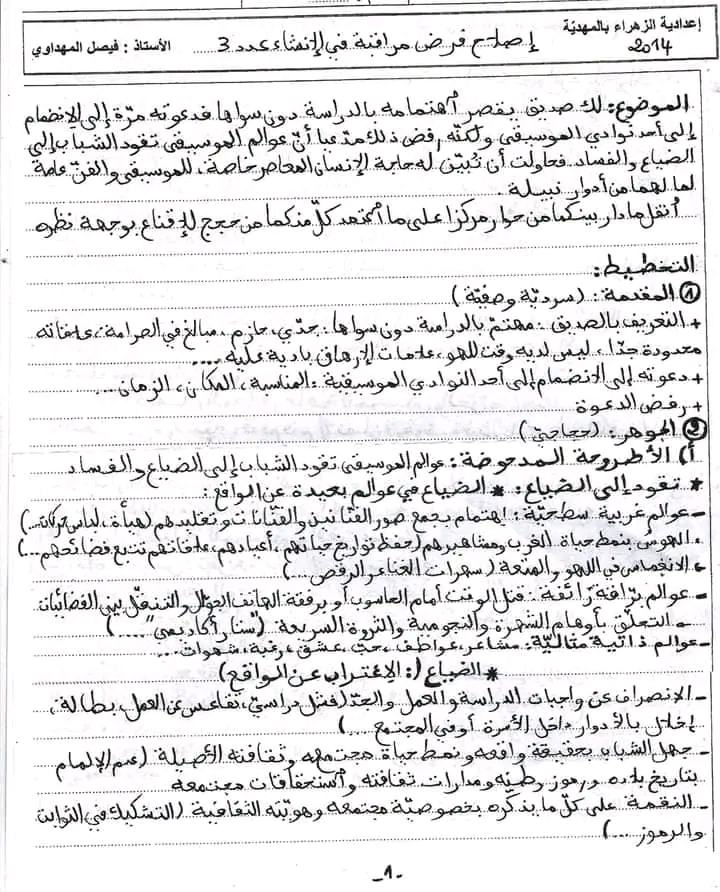 إعدادية الزهراء بالمهديّة
2014
إصلاح فرض مراقبة في الإنشاء عدد 3
الأستاذ : فيصل المهداوي
الموضوع: لك صديق يقصر اهتمامه بالدراسة دون سواها فدعوته مرّة إلى الانضمام
إلى أحد نوادي الموسيقى ولكنّه رفض ذلك مدّعيا أنّ عوالم الموسيقى تقود الشباب إلى
الضياع والفساد فحاولت أن تُبيّن له حاجة الإنسان المعاصر خاصة، للموسيقى والفنّ عامة
لما لهما من أدوار نبيلة.
أنقل ما دار بينكما من حوار مركّزا على ما اعتمد كلّ منكما من حجج للإقناع بوجهة نظره
التخطيط:
① المقدمة: (سرديّة وصفيّة)
+ التعريف بالصديق: مهتمّ بالدراسة دون سواها: جدّي، حازم، مبالغ في الصرامة، علاقاته
محدودة جدّا، ليس لديه وقت للهو، علامات الإرهاق بادية عليه....
+ دعوته إلى الانضمام إلى أحد النوادي الموسيقية: المناسبة، المكان، الزمان...
+ رفض الدعوة
② الجوهر: (حجاجيّ)
أ) الأطروحة المدحوضة: عوالم الموسيقى تقود الشباب إلى الضياع والفساد
* تقود إلى الضياع: * الضياع في عوالم بعيدة عن الواقع:
- عوالم غربية سطحيّة: اهتمام بجمع صور الفنّانين والفنّانات وتقليدهم (هيأة، لباس، حركات...)
. الهوس بنمط حياة الغرب ومشاهيرهم (حفظ تواريخ حياتهم، أعيادهم، علاقاتهم تتبع فضائحهم...)
. الانغماس في اللهو والمتعة (سهرات الغناء والرقص...)
- عوالم برّاقة زائفة: قتل الوقت أمام الحاسوب أو برفقة الهاتف الجوّال والتنقّل بين الفضائيات
- التعلّق بأوهام الشهرة والنجومية والثروة السريعة ("ستار أكاديمي"....)
- عوالم ذاتية مثاليّة: مشاعر، عواطف، حبّ، عشق، رغبة، شهوات...
* الضياع (: الاغتراب عن الواقع)
- الانصراف عن واجبات الدراسة والعمل والجدّ (فشل دراسيّ، تقاعس عن العمل، بطالة،
إخلال بالأدوار داخل الأسرة أو في المجتمع....)
- جهل الشباب بحقيقة واقعه ونمط حياة مجتمعه وثقافته الأصيلة (عدم الإلمام
بتاريخ بلاده ورموز وطنه ومدارات ثقافته واستحقاقات مجتمعه
- النقمة على كلّ ما يذكّره بخصوصيّة مجتمعه وهويّته الثقافية (التشكيك في الثوابت
والرموز....)
-1-